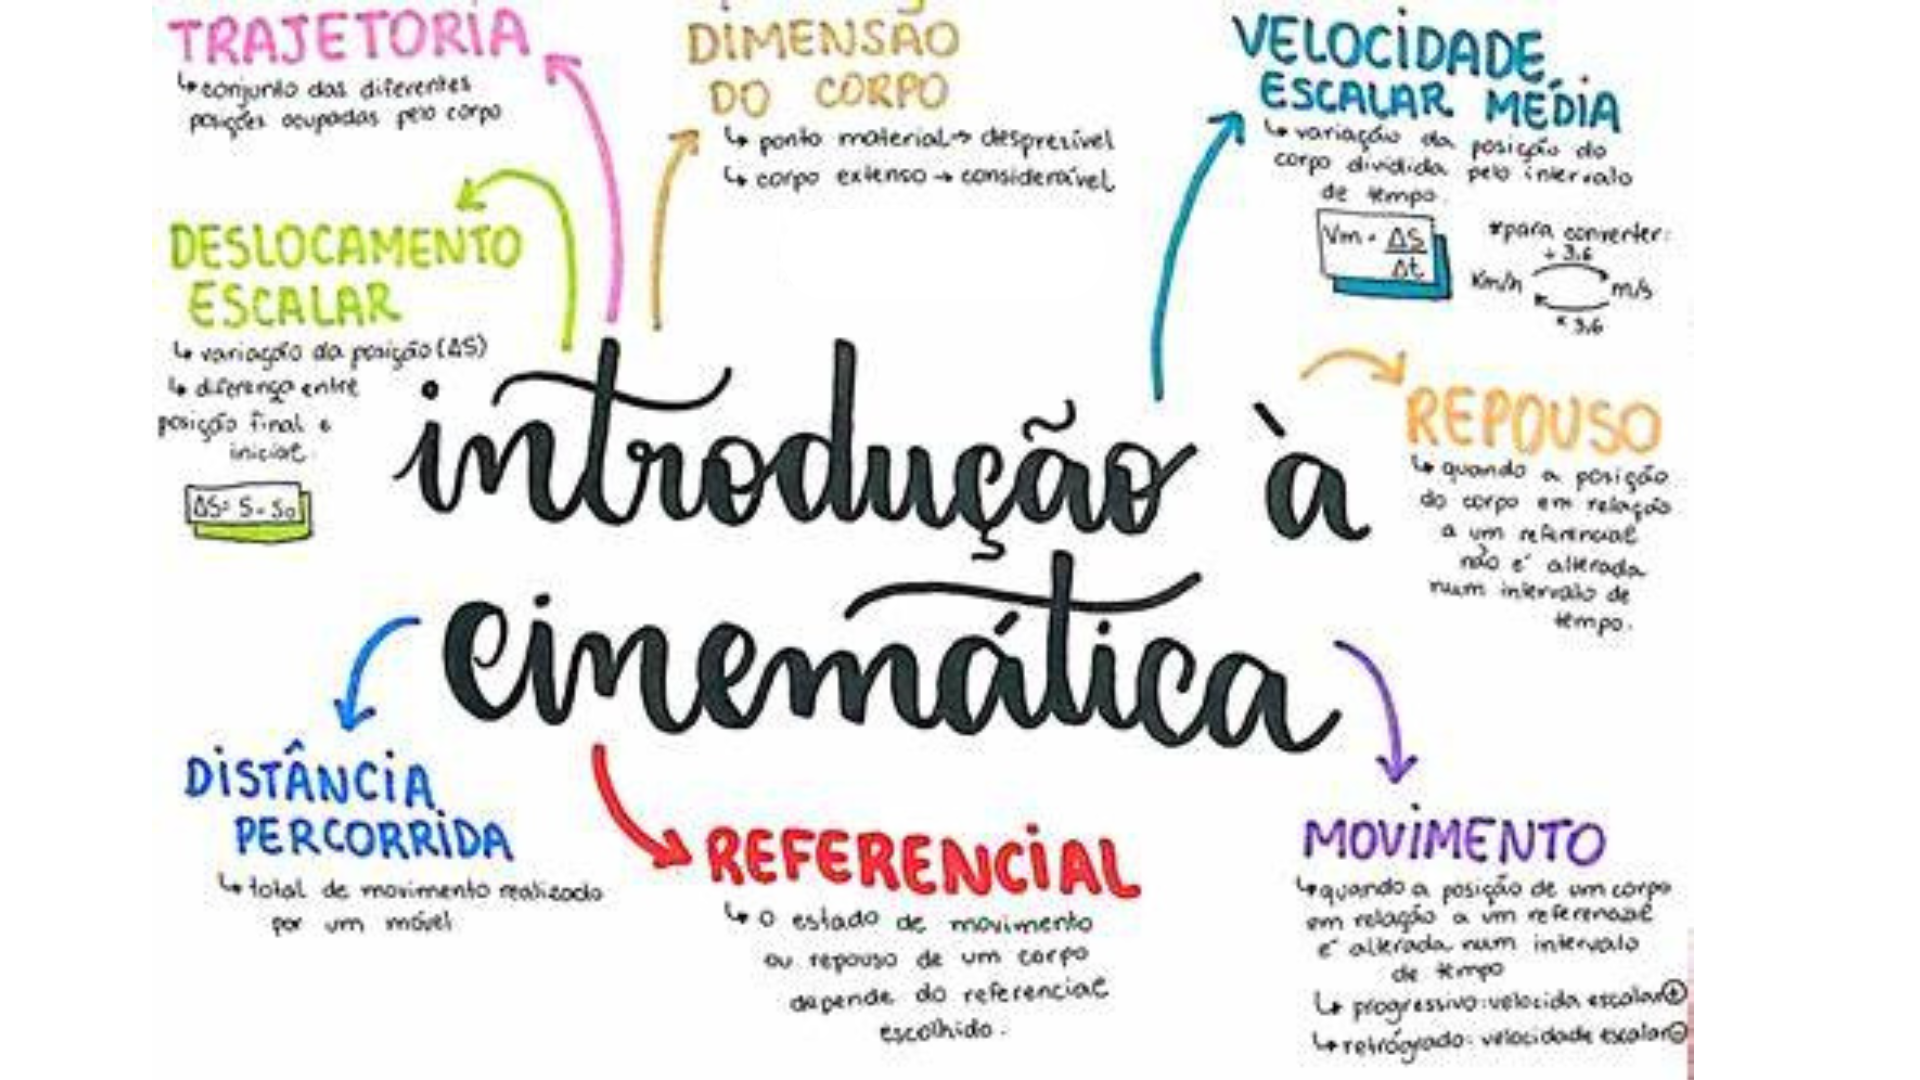 TRAJETORIA
↳ conjunto das diferentes
posições ocupadas pelo corpo
DIMENSÃO
DO CORPO
↳ ponto material → desprezível
↳ corpo extenso → considerável
VELOCIDADE
ESCALAR MÉDIA
↳ variação da posição do
corpo dividida pelo intervalo
de tempo.
Vm = ΔS
Δt
*para converter:
÷ 3,6
Km/h m/s
× 3,6
DESLOCAMENTO
ESCALAR
↳ variação da posição (ΔS)
↳ diferença entre
posição final e
inicial
ΔS= S - S₀
introdução à
cinemática
REPOUSO
↳ quando a posição
do corpo em relação
a um referencial
não é alterada
num intervalo de
tempo.
DISTÂNCIA
PERCORRIDA
↳ total de movimento realizado
por um móvel
REFERENCIAL
↳ o estado de movimento
ou repouso de um corpo
depende do referencial
escolhido.
MOVIMENTO
↳ quando a posição de um corpo
em relação a um referencial
é alterada num intervalo
de tempo
↳ progressivo: velocida escalar ⊕
↳ retrógrado: velocidade escalar ⊖